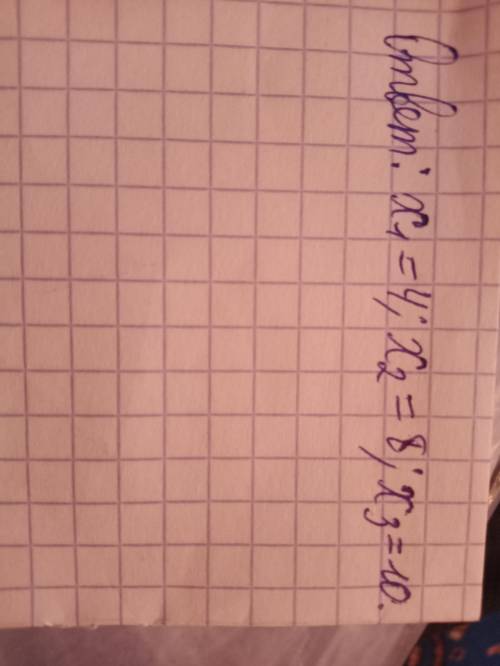 Ответ: x₁ = 4; x₂ = 8; x₃ = 10.